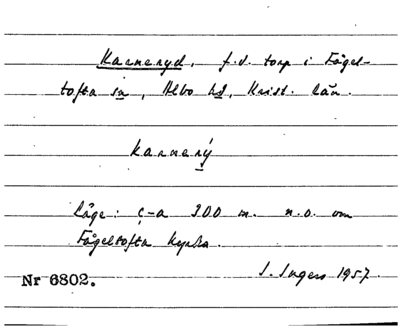 Karneryd, f.d. torp i Fågel-
tofta sn, Albo hd, Krist. län.
karnerý
Läge: c-a 300 m. n.o. om
Fågeltofta kyrka.
Nr 6802. I. Ingers 1957.